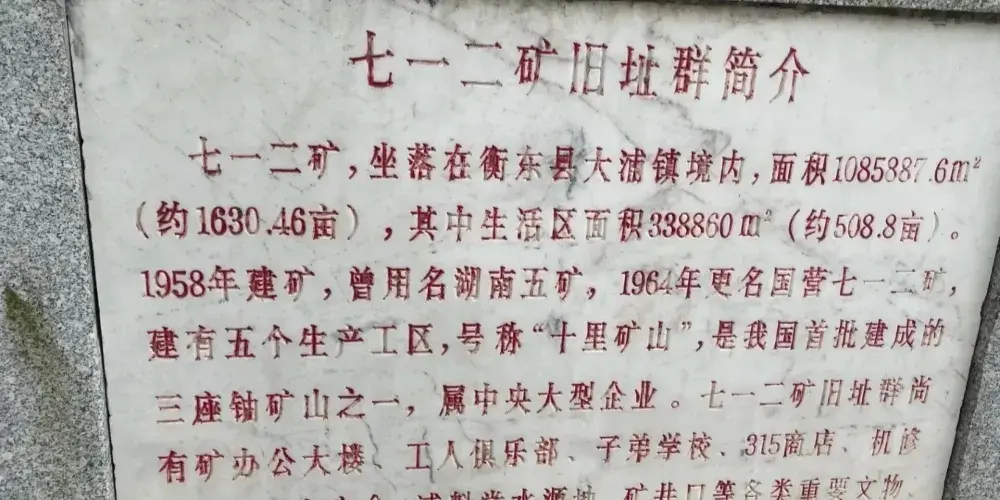 七一二矿旧址群简介
七一二矿，坐落在衡东县大浦镇境内，面积1085887.6m²
（约1630.46亩），其中生活区面积338860m²（约508.8亩）。
1958年建矿，曾用名湖南五矿，1964年更名国营七一二矿，
建有五个生产工区，号称“十里矿山”，是我国首批建成的
三座铀矿山之一，属中央大型企业。七一二矿旧址群尚
有矿办公大楼、工人俱乐部、子弟学校、315商店、机修
水源地、矿井口等各类重要文物